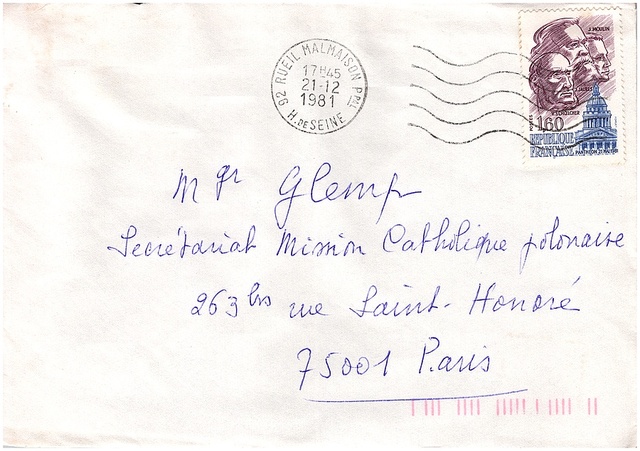 92 RUEIL MALMAISON PPAL
17H45
21-12
1981
H. DE SEINE
J. MOULIN
J. JAURES
V. SCHOELCHER
1,60
REPUBLIQUE
FRANÇAISE
PANTHEON 21 MAI 1981
Mgr Glemp
Secrétariat Mission Catholique polonaise
263 bis rue Saint-Honoré
75001 Paris